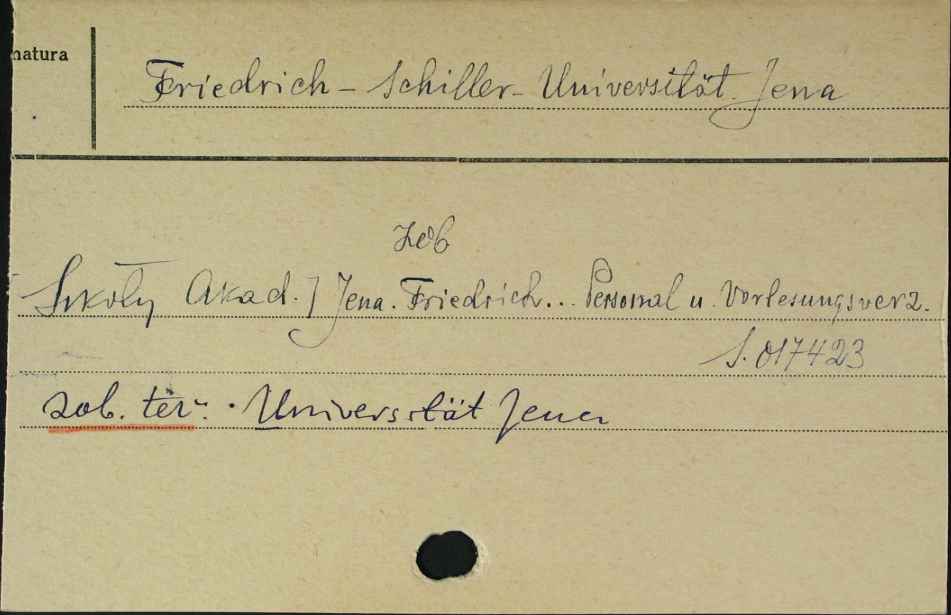 natura
Friedrich-Schiller-Universität Jena
zob
Szkoły Akad.] Jena. Friedrich... Personal u. Vorlesungsverz.
S. 017423
zob. też: Universität Jena